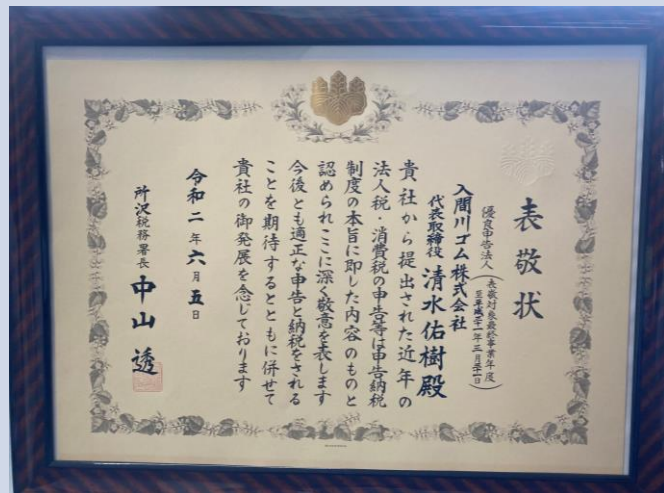 表敬状
優良申告法人
表敬対象最終事業年度
至平成三十一年三月三十一日
入間川ゴム株式会社
代表取締役 清水佑樹殿
貴社から提出された近年の
法人税・消費税の申告等は申告納税
制度の本旨に即した内容のものと
認められここに深く敬意を表します
今後とも適正な申告と納税をされる
ことを期待するとともに併せて
貴社の御発展を念じております
令和二年六月五日
所沢税務署長 中山透